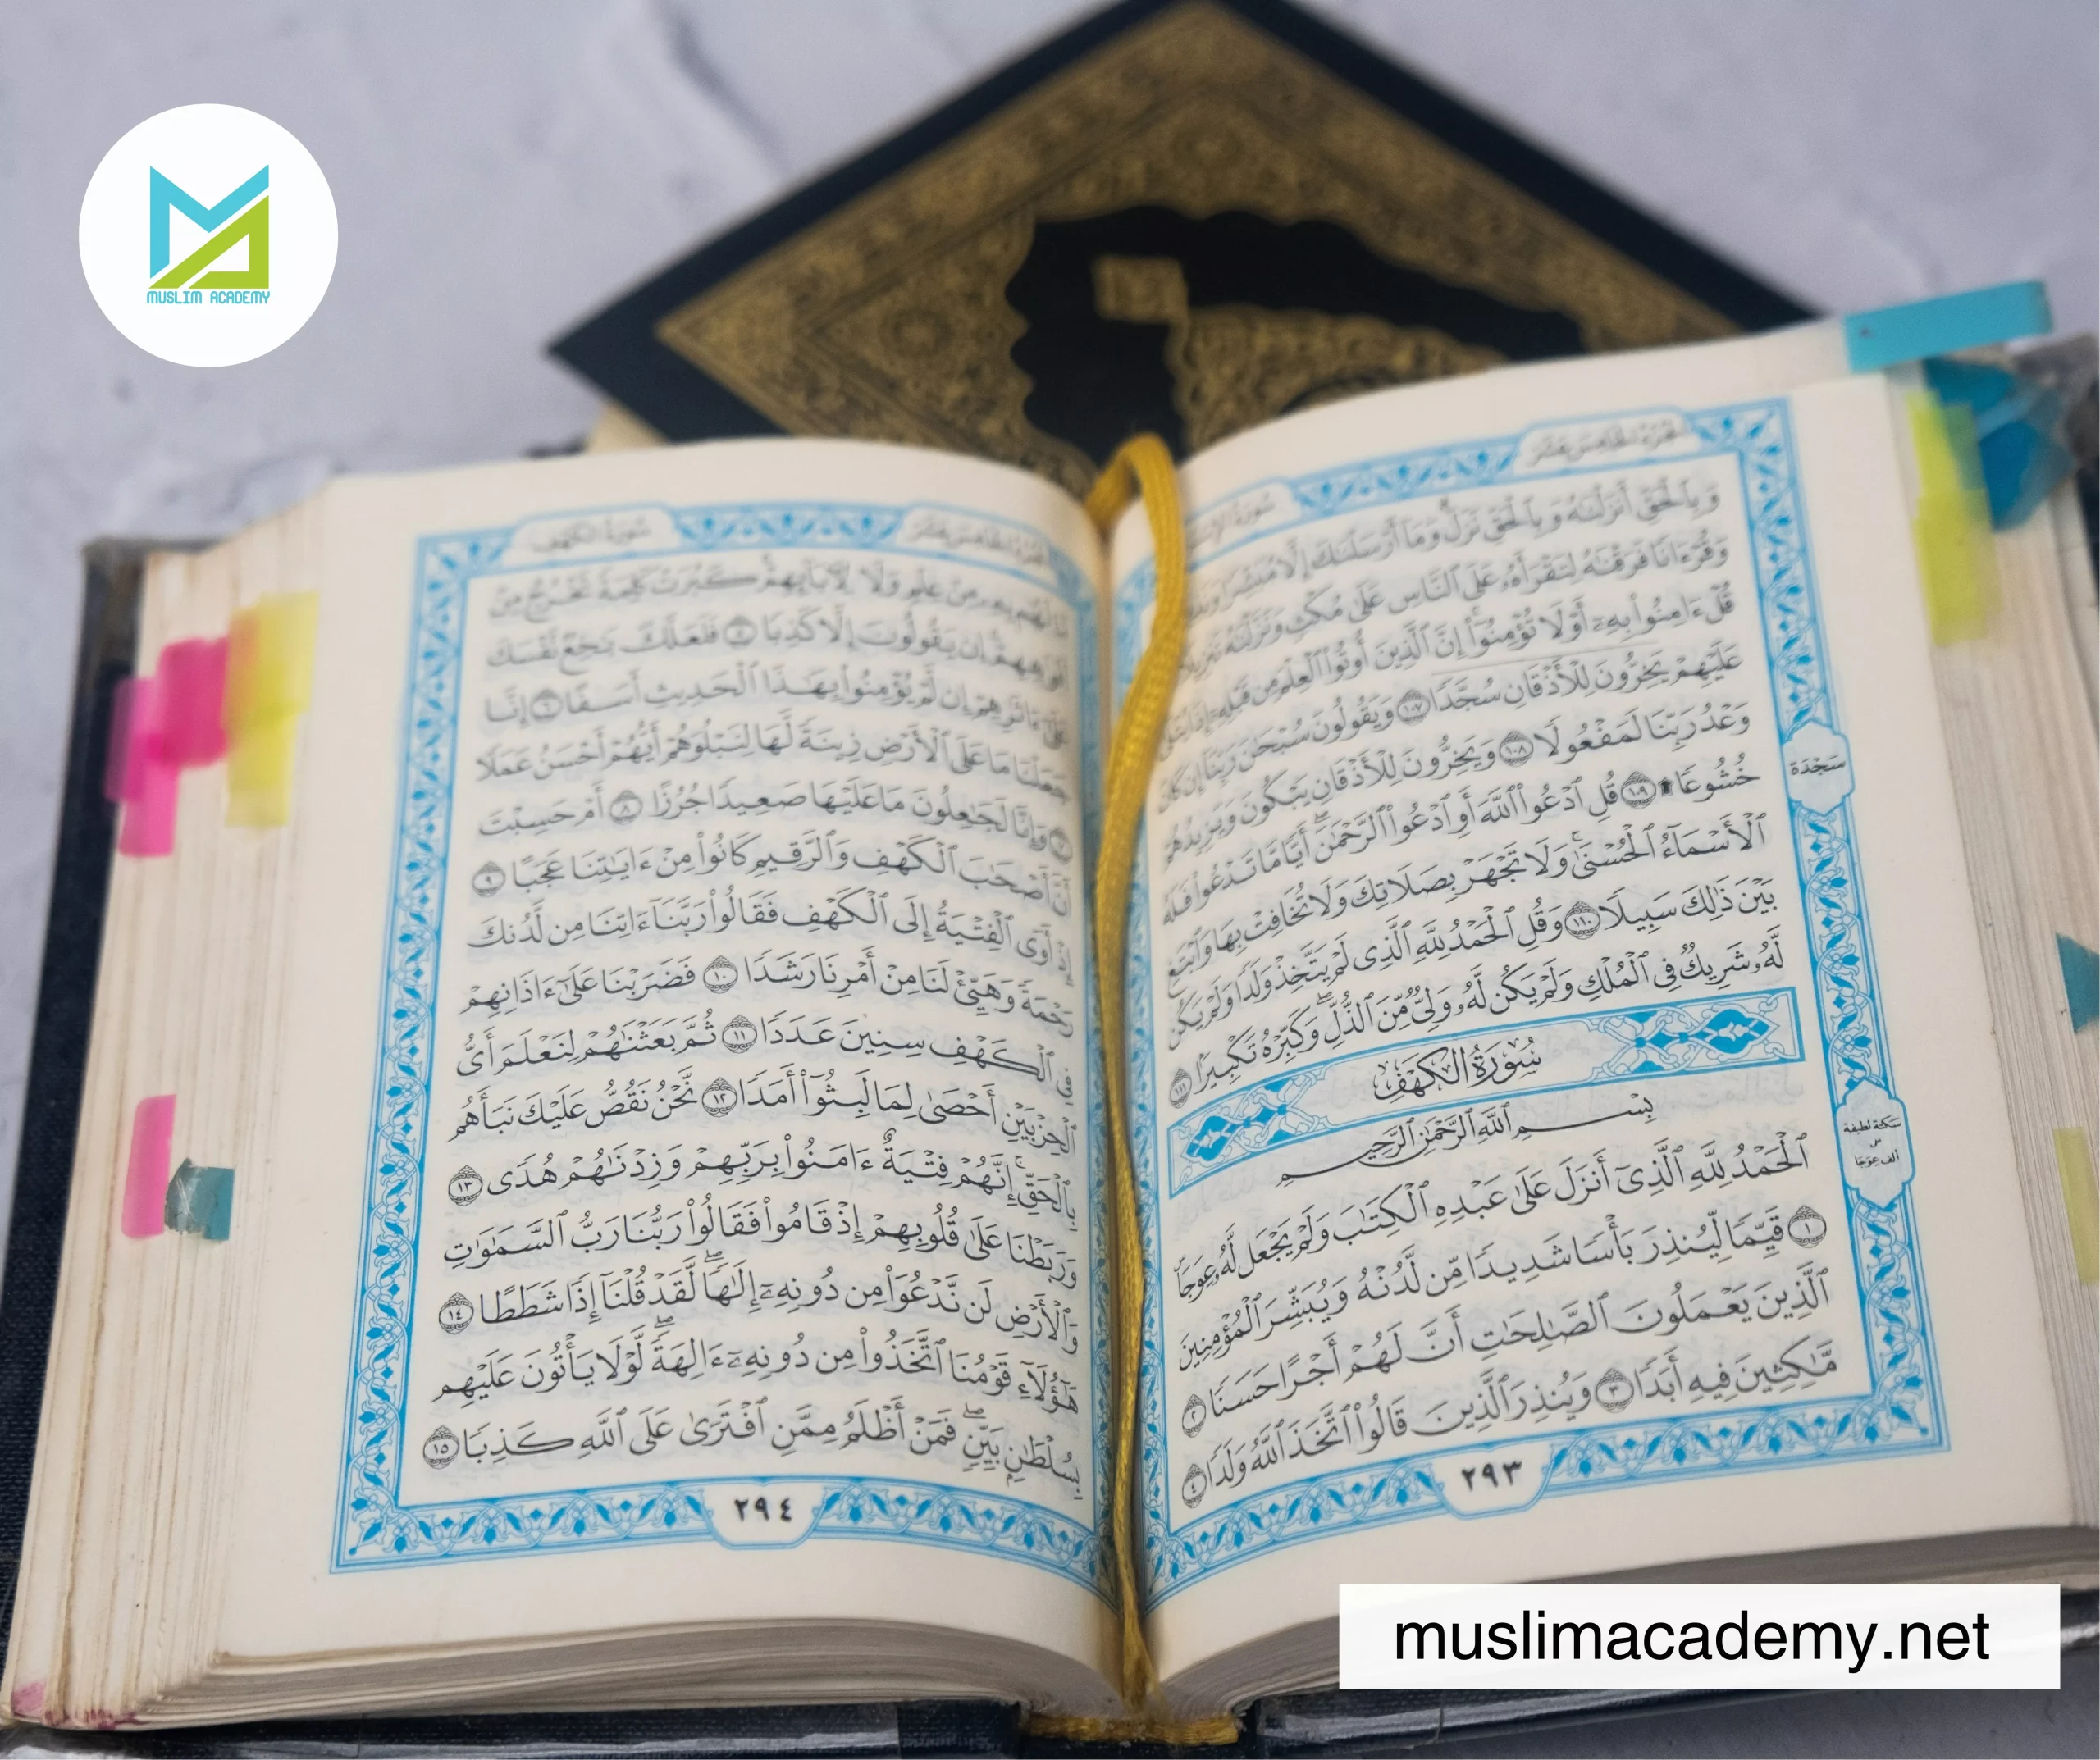 MUSLIM ACADEMY
الجزء الخامس عشر
سورة
وَبِٱلْحَقِّ أَنزَلْنَٰهُ وَبِٱلْحَقِّ نَزَلَ وَمَآ أَرْسَلْنَٰكَ إِلَّا مُبَشِّرًا
وَقُرْءَانًا فَرَقْنَٰهُ لِتَقْرَأَهُۥ عَلَى ٱلنَّاسِ عَلَىٰ مُكْثٍ وَنَزَّلْنَٰهُ تَنزِيلًا
قُلْ ءَامِنُوا۟ بِهِۦٓ أَوْ لَا تُؤْمِنُوٓا۟ إِنَّ ٱلَّذِينَ أُوتُوا۟ ٱلْعِلْمَ مِن قَبْلِهِۦٓ إِذَا يُتْلَىٰ
عَلَيْهِمْ يَخِرُّونَ لِلْأَذْقَانِ سُجَّدًا ١٠٧ وَيَقُولُونَ سُبْحَٰنَ رَبِّنَآ إِن كَانَ
وَعْدُ رَبِّنَا لَمَفْعُولًا ١٠٨ وَيَخِرُّونَ لِلْأَذْقَانِ يَبْكُونَ وَيَزِيدُهُمْ
خُشُوعًا ۩ ١٠٩ قُلِ ٱدْعُوا۟ ٱللَّهَ أَوِ ٱدْعُوا۟ ٱلرَّحْمَٰنَ ۖ أَيًّا مَّا تَدْعُوا۟ فَلَهُ
ٱلْأَسْمَآءُ ٱلْحُسْنَىٰ ۚ وَلَا تَجْهَرْ بِصَلَاتِكَ وَلَا تُخَافِتْ بِهَا وَٱبْتَغِ
بَيْنَ ذَٰلِكَ سَبِيلًا ١١٠ وَقُلِ ٱلْحَمْدُ لِلَّهِ ٱلَّذِى لَمْ يَتَّخِذْ وَلَدًا وَلَمْ يَكُن
لَّهُۥ شَرِيكٌ فِى ٱلْمُلْكِ وَلَمْ يَكُن لَّهُۥ وَلِىٌّ مِّنَ ٱلذُّلِّ ۖ وَكَبِّرْهُ تَكْبِيرًۢا ١١١
سُورَةُ الكَهْفِ
بِسْمِ ٱللَّهِ ٱلرَّحْمَٰنِ ٱلرَّحِيمِ
ٱلْحَمْدُ لِلَّهِ ٱلَّذِىٓ أَنزَلَ عَلَىٰ عَبْدِهِ ٱلْكِتَٰبَ وَلَمْ يَجْعَل لَّهُۥ عِوَجَا ۜ
١ قَيِّمًا لِّيُنذِرَ بَأْسًا شَدِيدًا مِّن لَّدُنْهُ وَيُبَشِّرَ ٱلْمُؤْمِنِينَ
ٱلَّذِينَ يَعْمَلُونَ ٱلصَّٰلِحَٰتِ أَنَّ لَهُمْ أَجْرًا حَسَنًا ٢
مَّٰكِثِينَ فِيهِ أَبَدًا ٣ وَيُنذِرَ ٱلَّذِينَ قَالُوا۟ ٱتَّخَذَ ٱللَّهُ وَلَدًا ٤
٢٩٣
سَجْدَة
سكتة لطيفة
س
ألف عوجا
الجزء الخامس عشر
سورة الكهف
مَّا لَهُم بِهِۦ مِنْ عِلْمٍ وَلَا لِءَابَآئِهِمْ ۚ كَبُرَتْ كَلِمَةً تَخْرُجُ مِنْ
أَفْوَٰهِهِمْ ۚ إِن يَقُولُونَ إِلَّا كَذِبًا ٥ فَلَعَلَّكَ بَٰخِعٌ نَّفْسَكَ
عَلَىٰٓ ءَاثَٰرِهِمْ إِن لَّمْ يُؤْمِنُوا۟ بِهَٰذَا ٱلْحَدِيثِ أَسَفًا ٦ إِنَّا
جَعَلْنَا مَا عَلَى ٱلْأَرْضِ زِينَةً لَّهَا لِنَبْلُوَهُمْ أَيُّهُمْ أَحْسَنُ عَمَلًا
٧ وَإِنَّا لَجَٰعِلُونَ مَا عَلَيْهَا صَعِيدًا جُرُزًا ٨ أَمْ حَسِبْتَ
أَنَّ أَصْحَٰبَ ٱلْكَهْفِ وَٱلرَّقِيمِ كَانُوا۟ مِنْ ءَايَٰتِنَا عَجَبًا ٩
إِذْ أَوَى ٱلْفِتْيَةُ إِلَى ٱلْكَهْفِ فَقَالُوا۟ رَبَّنَآ ءَاتِنَا مِن لَّدُنكَ
رَحْمَةً وَهَيِّئْ لَنَا مِنْ أَمْرِنَا رَشَدًا ١٠ فَضَرَبْنَا عَلَىٰٓ ءَاذَانِهِمْ
فِى ٱلْكَهْفِ سِنِينَ عَدَدًا ١١ ثُمَّ بَعَثْنَٰهُمْ لِنَعْلَمَ أَىُّ
ٱلْحِزْبَيْنِ أَحْصَىٰ لِمَا لَبِثُوٓا۟ أَمَدًا ١٢ نَّحْنُ نَقُصُّ عَلَيْكَ نَبَأَهُم
بِٱلْحَقِّ ۚ إِنَّهُمْ فِتْيَةٌ ءَامَنُوا۟ بِرَبِّهِمْ وَزِدْنَٰهُمْ هُدًى ١٣
وَرَبَطْنَا عَلَىٰ قُلُوبِهِمْ إِذْ قَامُوا۟ فَقَالُوا۟ رَبُّنَا رَبُّ ٱلسَّمَٰوَٰتِ
وَٱلْأَرْضِ لَن نَّدْعُوَا۟ مِن دُونِهِۦٓ إِلَٰهًا ۖ لَّقَدْ قُلْنَآ إِذًا شَطَطًا ١٤
هَٰٓؤُلَآءِ قَوْمُنَا ٱتَّخَذُوا۟ مِن دُونِهِۦٓ ءَالِهَةً ۖ لَّوْلَا يَأْتُونَ عَلَيْهِم
بِسُلْطَٰنٍۭ بَيِّنٍ ۖ فَمَنْ أَظْلَمُ مِمَّنِ ٱفْتَرَىٰ عَلَى ٱللَّهِ كَذِبًا ١٥
٢٩٤
muslimacademy.net